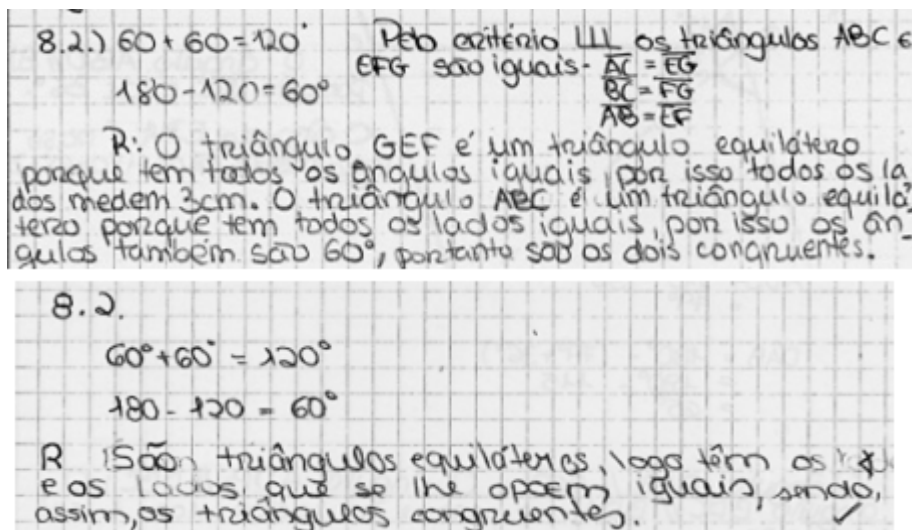 8.2.) 60 + 60 = 120°
180 - 120 = 60°
Pelo critério LLL os triângulos ABC e
EFG são iguais - AC = EG
BC = FG
AB = EF
R: O triângulo GEF é um triângulo equilátero
porque tem todos os ângulos iguais, por isso todos os la
dos medem 3cm. O triângulo ABC é um triângulo equilá-
tero porque tem todos os lados iguais, por isso os ân-
gulos também são 60°, portanto são os dois congruentes.
8.2.
60° + 60° = 120°
180 - 120 = 60°
R São triângulos equiláteros, logo têm os
e os lados que se lhe opõem iguais, sendo,
assim, os triângulos congruentes.